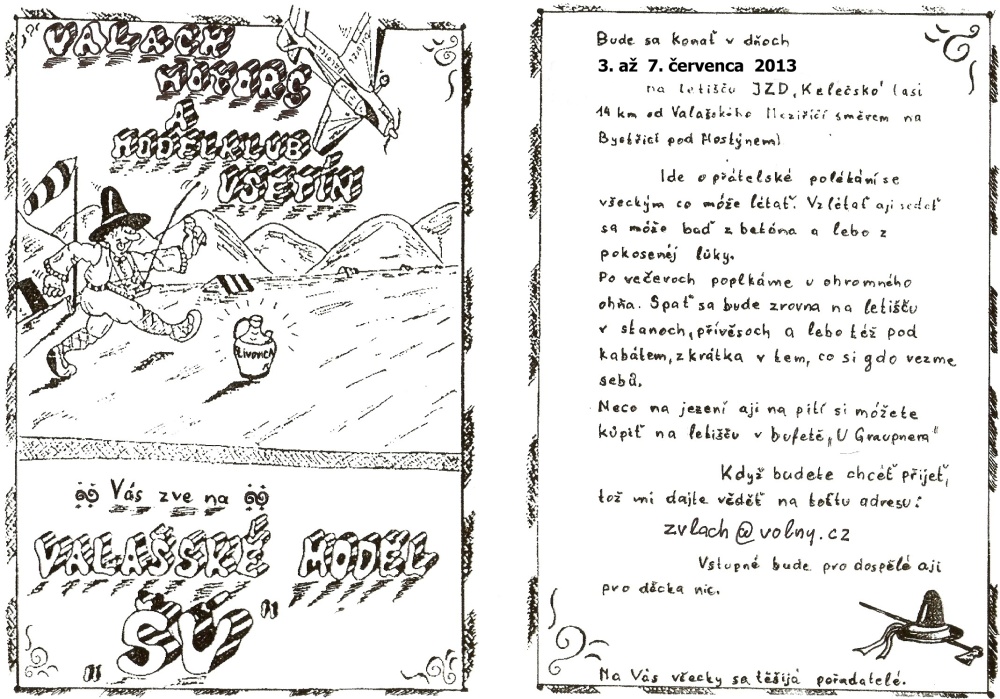 VALACH
MOTORS
A
MODELKLUB
VSETÍN
SLIVOVICA
Vás zve na
VALAŠSKÉ MODEL
"ŠÚ"
Bude sa konať v dňoch
3. až 7. července 2013
na letišču JZD „Kelečsko" (asi
14 km od Valašského Meziříčí směrem na
Bystřicí pod Hostýnem)
Ide o přátelské polékání se
všeckým co može létať. Vzlétať aji sedať
sa može buď z betóna a lebo z
pokosenéj lúky.
Po večeroch poplkáme u ohromného
ohňa. Spať sa bude zrovna na letišču
v stanoch, přívěsoch a lebo též pod
kabátem, zkrátka v tem, co si gdo vezme
sebú.
Neco na jezení aji na pití si možete
kúpiť na letišču v bufetě „U Graupnera"
Když budete chcéť přijeť,
tož mi dajte věděť na toftu adresu:
zvlach@volny.cz
Vstupné bude pro dospělé aji
pro děcka nic.
Na Vás všecky sa těšijá pořadatelé.